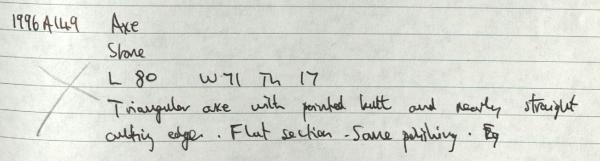 1996 A149 Axe
Stone
L 80 W 71 Th 17
Triangular axe with pointed butt and nearly straight
cutting edge. Flat section. Some polishing.